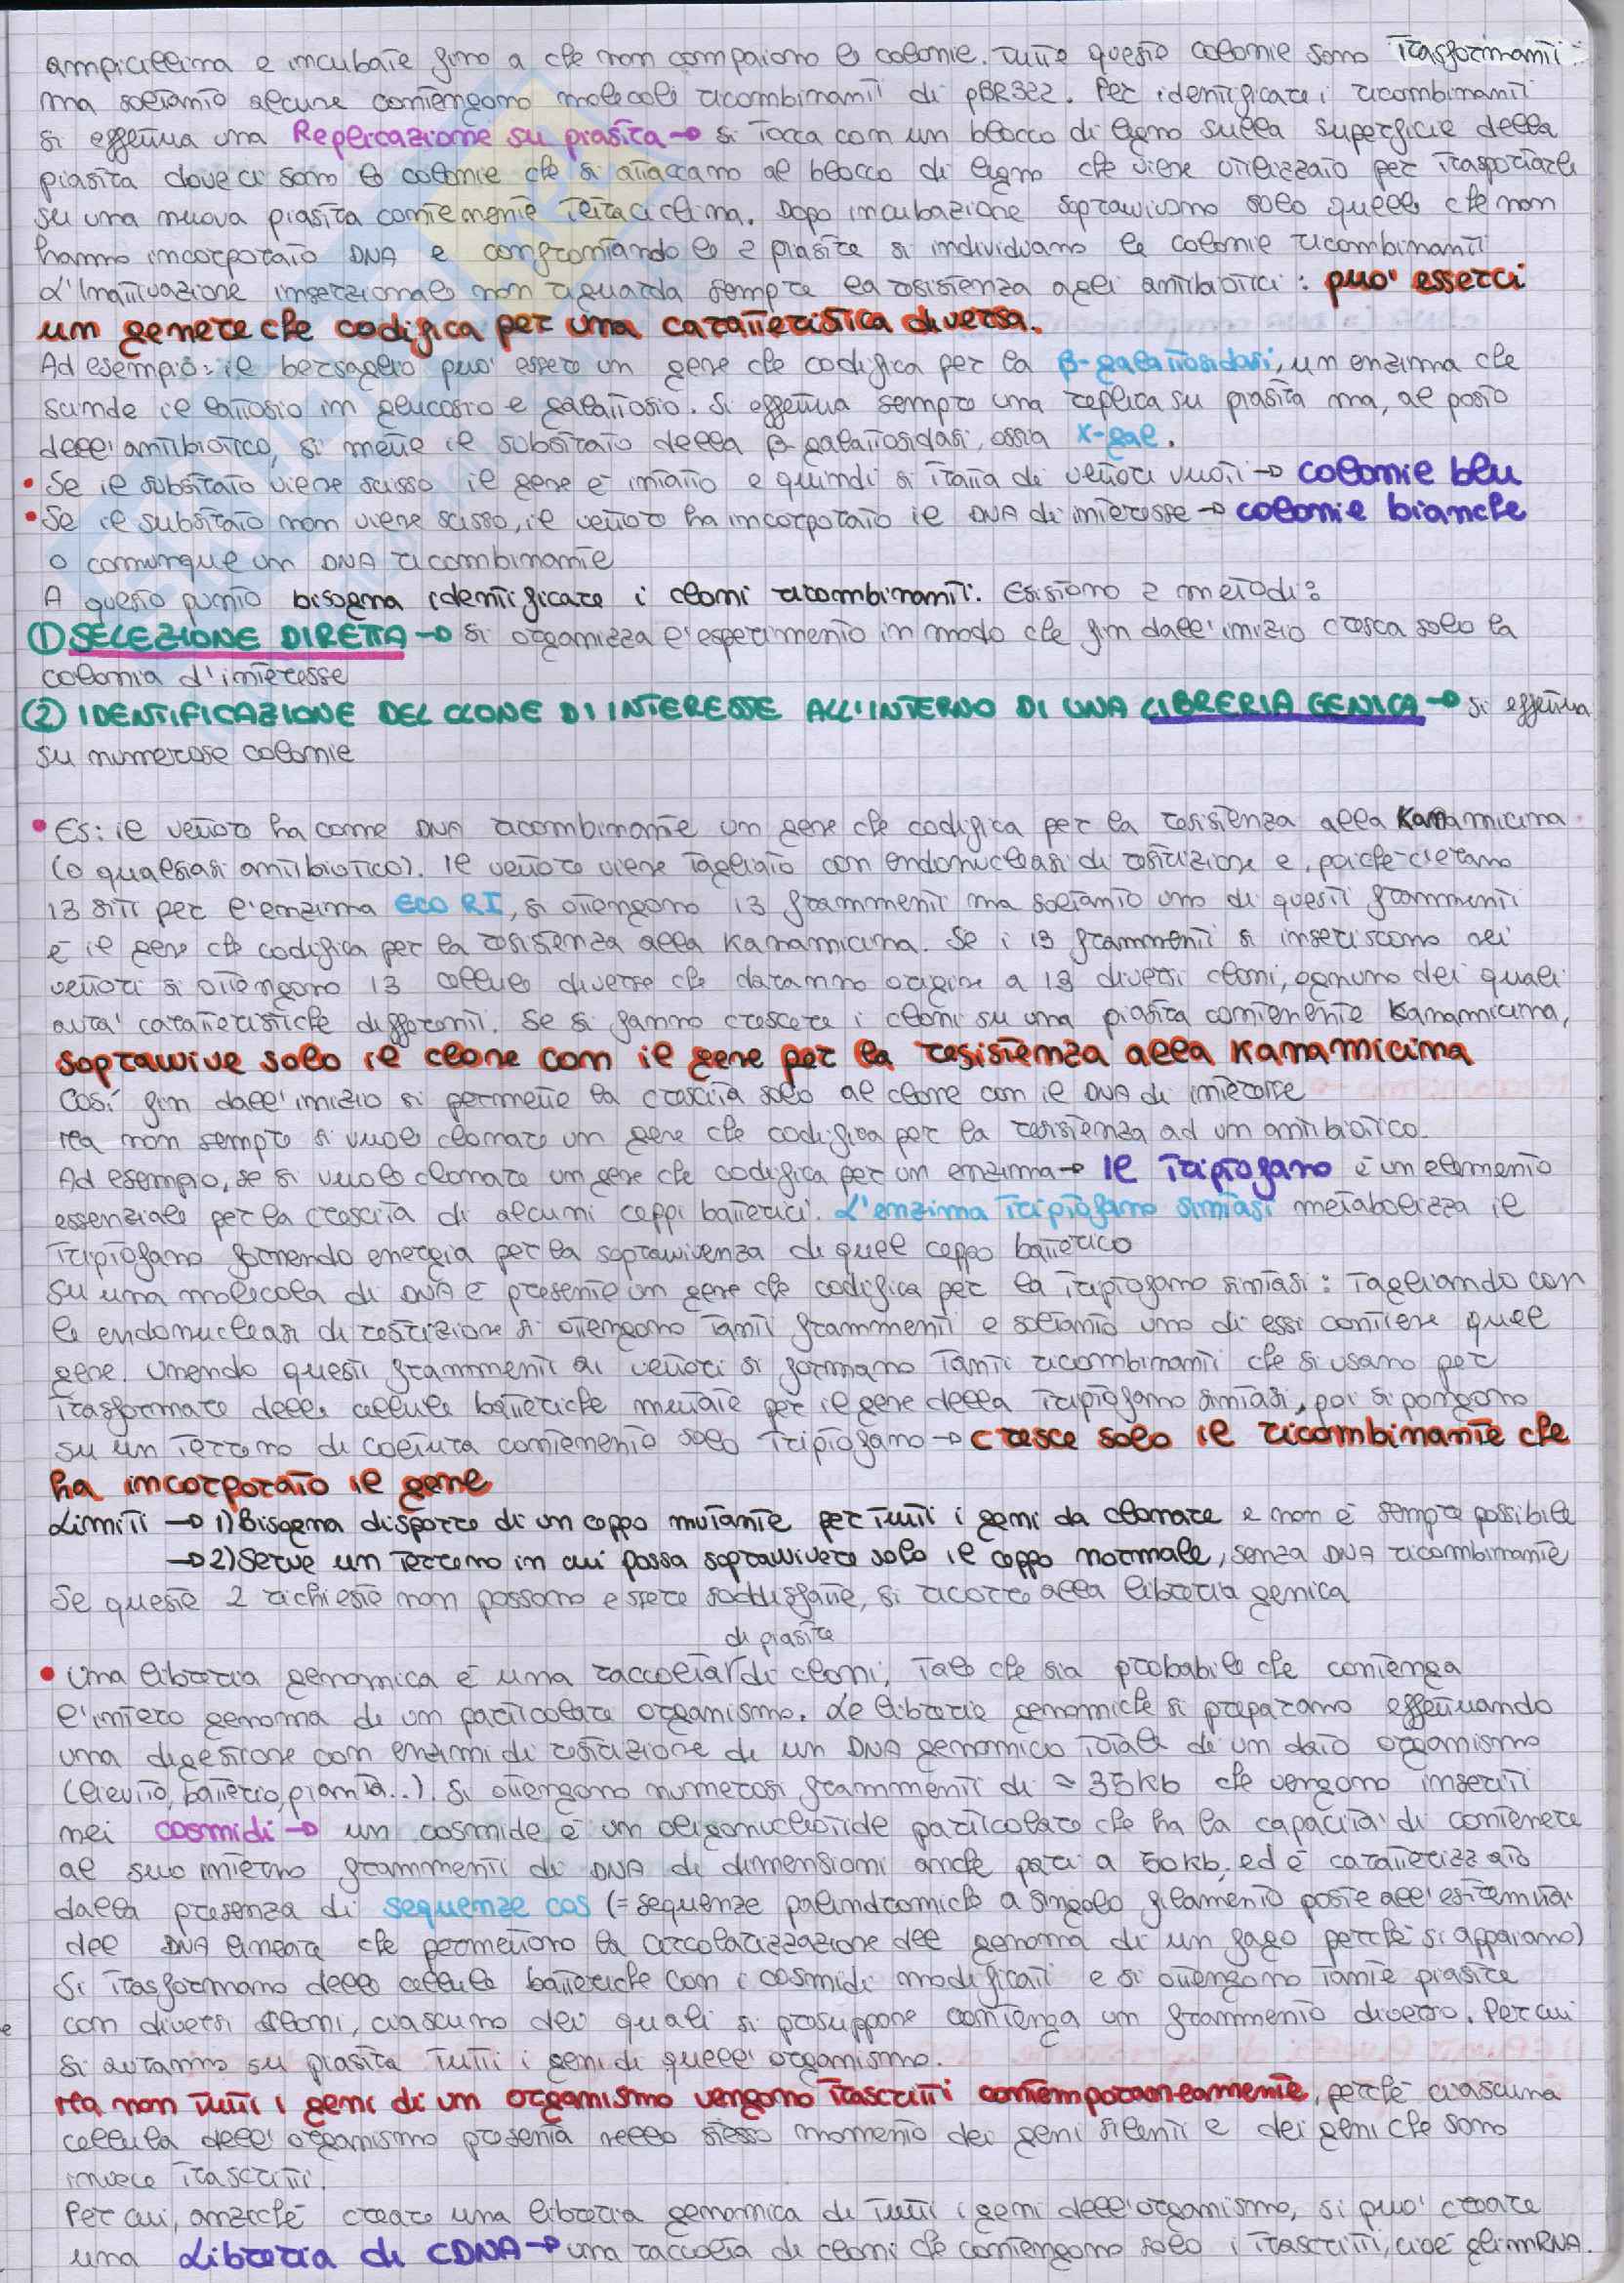 ampicillina e incubate fino a che non compaiono le colonie. Tutte queste colonie sono trasformanti
ma soltanto alcune contengono molecole ricombinanti di pBR322. Per identificare i ricombinanti
si effettua una Replicazione su piastra → si tocca con un blocco di legno sulla superficie della
piastra dove ci sono le colonie che si attaccano al blocco di legno che viene utilizzato per trasportarle
su una nuova piastra contenente tetraciclina. Dopo incubazione sopravvivono solo quelle che non
hanno incorporato DNA e confrontando le 2 piastre si individuano le colonie ricombinanti
L'Inattivazione inserzionale non riguarda sempre la resistenza agli antibiotici: può esserci
un genere che codifica per una caratteristica diversa.
Ad esempio: il bersaglio può essere un gene che codifica per la β-galattosidasi, un enzima che
scinde il lattosio in glucosio e galattosio. Si effettua sempre una replica su piastra ma, al posto
dell'antibiotico, si mette il substrato della β-galattosidasi, ossia X-gal.
• Se il substrato viene scisso il gene è intatto e quindi si tratta di vettori vuoti → colonie blu
• Se il substrato non viene scisso, il vettore ha incorporato il DNA di interesse → colonie bianche
o comunque un DNA ricombinante
A questo punto bisogna identificare i cloni ricombinanti. Esistono 2 metodi:
① SELEZIONE DIRETTA → si organizza l'esperimento in modo che fin dall'inizio cresca solo la
colonia d'interesse
② IDENTIFICAZIONE DEL CLONE DI INTERESSE ALL'INTERNO DI UNA LIBRERIA GENICA → si effettua
su numerose colonie
• Es: il vettore ha come DNA ricombinante un gene che codifica per la resistenza alla Kanamicina
(o qualsiasi antibiotico). Il vettore viene tagliato con endonucleasi di restrizione e, poichè c'erano
13 siti per l'enzima Eco RI, si ottengono 13 frammenti ma soltanto uno di questi frammenti
è il gene che codifica per la resistenza alla Kanamicina. Se i 13 frammenti si inseriscono nei
vettori si ottengono 13 cellule diverse che daranno origine a 13 diversi cloni, ognuno dei quali
avrà caratteristiche differenti. Se si fanno crescere i cloni su una piastra contenente Kanamicina,
sopravvive solo il clone con il gene per la resistenza alla Kanamicina
Così fin dall'inizio si permette la crescita solo al clone con il DNA di interesse
Ma non sempre si vuole clonare un gene che codifica per la resistenza ad un antibiotico.
Ad esempio, se si vuole clonare un gene che codifica per un enzima → Il triptofano è un elemento
essenziale per la crescita di alcuni ceppi batterici. L'enzima triptofano sintasi metabolizza il
triptofano fornendo energia per la sopravvivenza di quel ceppo batterico
Su una molecola di DNA è presente un gene che codifica per la triptofano sintasi: tagliando con
le endonucleasi di restrizione si ottengono tanti frammenti e soltanto uno di essi contiene quel
gene. Unendo questi frammenti ai vettori si formano tanti ricombinanti che si usano per
trasformare delle cellule batteriche mutate per il gene della triptofano sintasi, poi si pongono
su un terreno di coltura contenente solo triptofano → cresce solo il ricombinante che
ha incorporato il gene
Limiti → 1) Bisogna disporre di un ceppo mutante per tutti i geni da clonare e non è sempre possibile
→ 2) Serve un terreno in cui possa sopravvivere solo il ceppo normale, senza DNA ricombinante
Se queste 2 richieste non possono essere soddisfatte, si ricorre alla libreria genica
di piastre
• Una libreria genomica è una raccolta di cloni, tale che sia probabile che contenga
l'intero genoma di un particolare organismo. Le librerie genomiche si preparano effettuando
una digestione con enzimi di restrizione di un DNA genomico totale di un dato organismo
(lievito, batterio, pianta..). Si ottengono numerosi frammenti di ≈ 35kb che vengono inseriti
nei cosmidi → un cosmide è un oligonucleotide particolare che ha la capacità di contenere
al suo interno frammenti di DNA di dimensioni anche pari a 50kb, ed è caratterizzato
dalla presenza di sequenze cos (= sequenze palindromiche a singolo filamento poste all'estremità
del DNA lineare che permettono la circolarizzazione del genoma di un fago perché si appaiano)
Si trasformano delle cellule batteriche con i cosmidi modificati e si ottengono tante piastre
con diversi cloni, ciascuno dei quali si presuppone contenga un frammento diverso. Per cui
si avranno su piastra tutti i geni di quell'organismo.
Ma non tutti i geni di un organismo vengono trascritti contemporaneamente, perché ciascuna
cellula dell'organismo presenta nello stesso momento dei geni silenti e dei geni che sono
invece trascritti.
Per cui, anziché creare una libreria genomica di tutti i geni dell'organismo, si può creare
una Libreria di CDNA → una raccolta di cloni che contengono solo i trascritti, cioè gli mRNA.